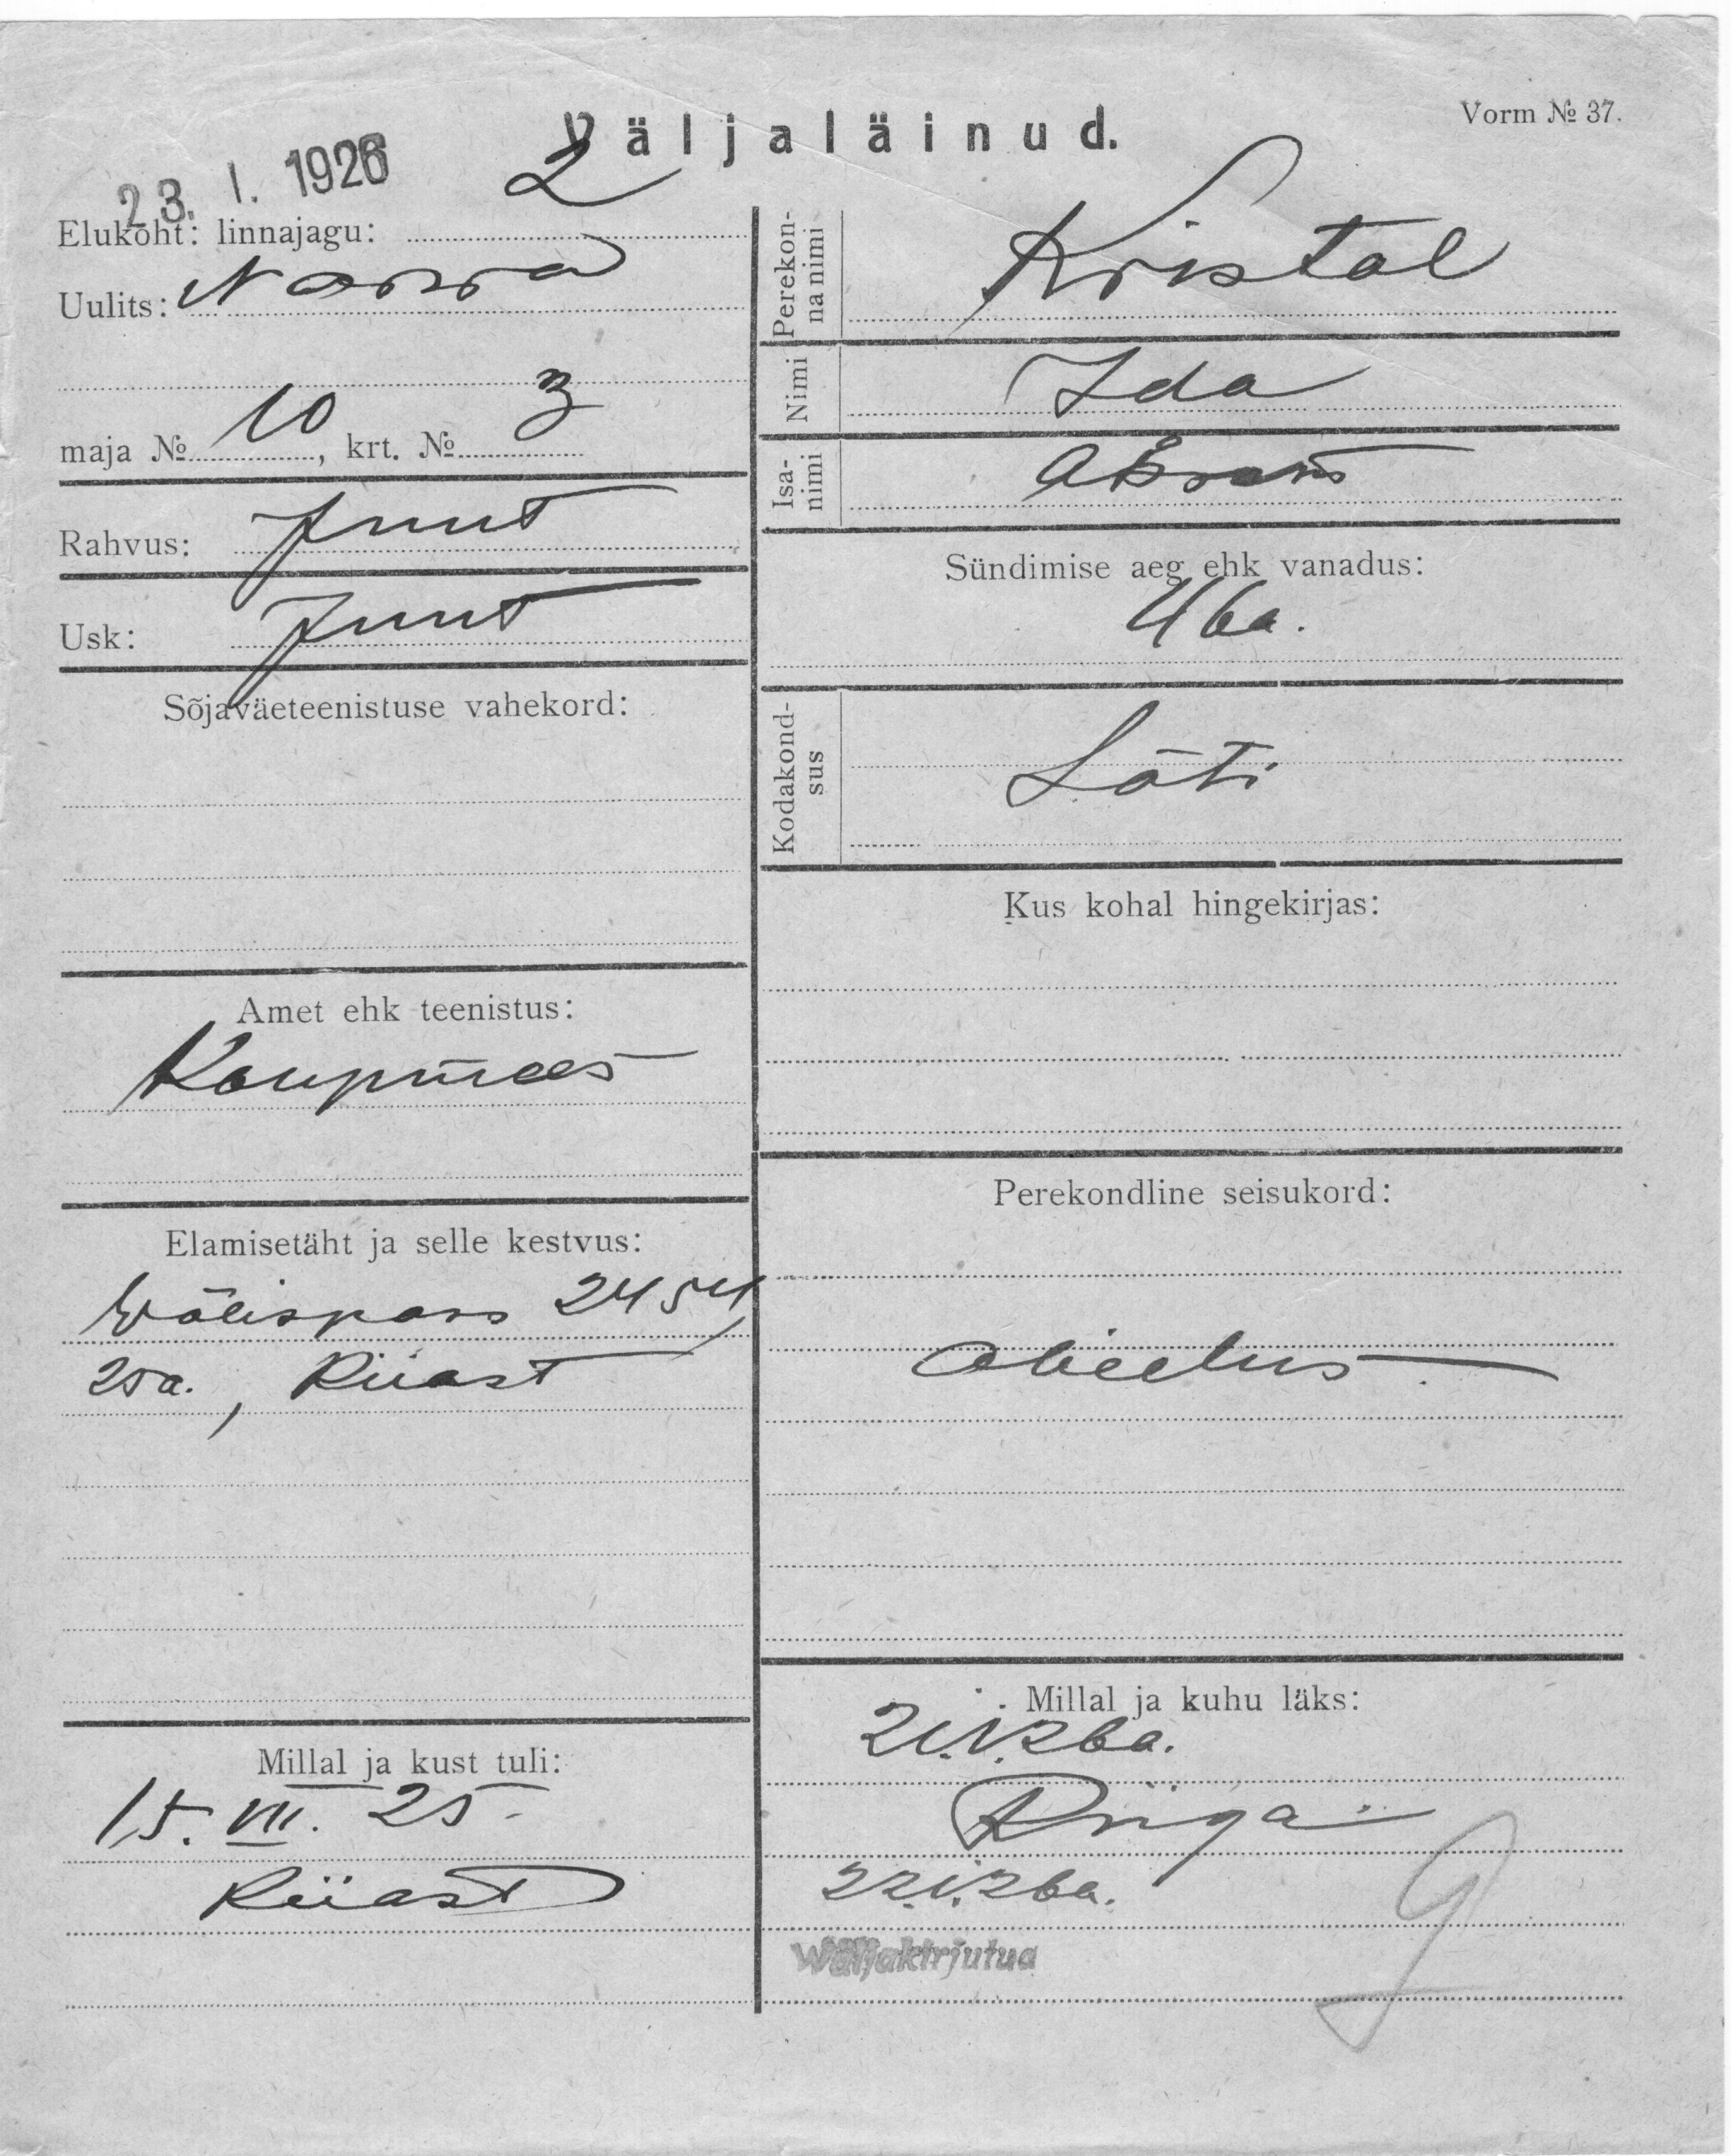 Vorm № 37.
Väljaläinud.
23. I. 1926
2
Elukoht: linnajagu:
Uulits: Narva
maja № 10, krt. № 3
Rahvus: Juut
Usk: Juut
Sõjaväeteenistuse vahekord:
Amet ehk teenistus:
Kaupmees
Elamisetäht ja selle kestvus:
Wälispass 2454
25a., Riiast
Millal ja kust tuli:
15. VII. 25.
Riiast
Perekonna nimi
Kristal
Nimi
Ida
Isanimi
Sündimise aeg ehk vanadus:
46a.
Kodakondsus
Läti
Kus kohal hingekirjas:
Perekondline seisukord:
abielus
Millal ja kuhu läks:
21.I.26a.
Riiga
22.I.26a.
Wäljakirjutud